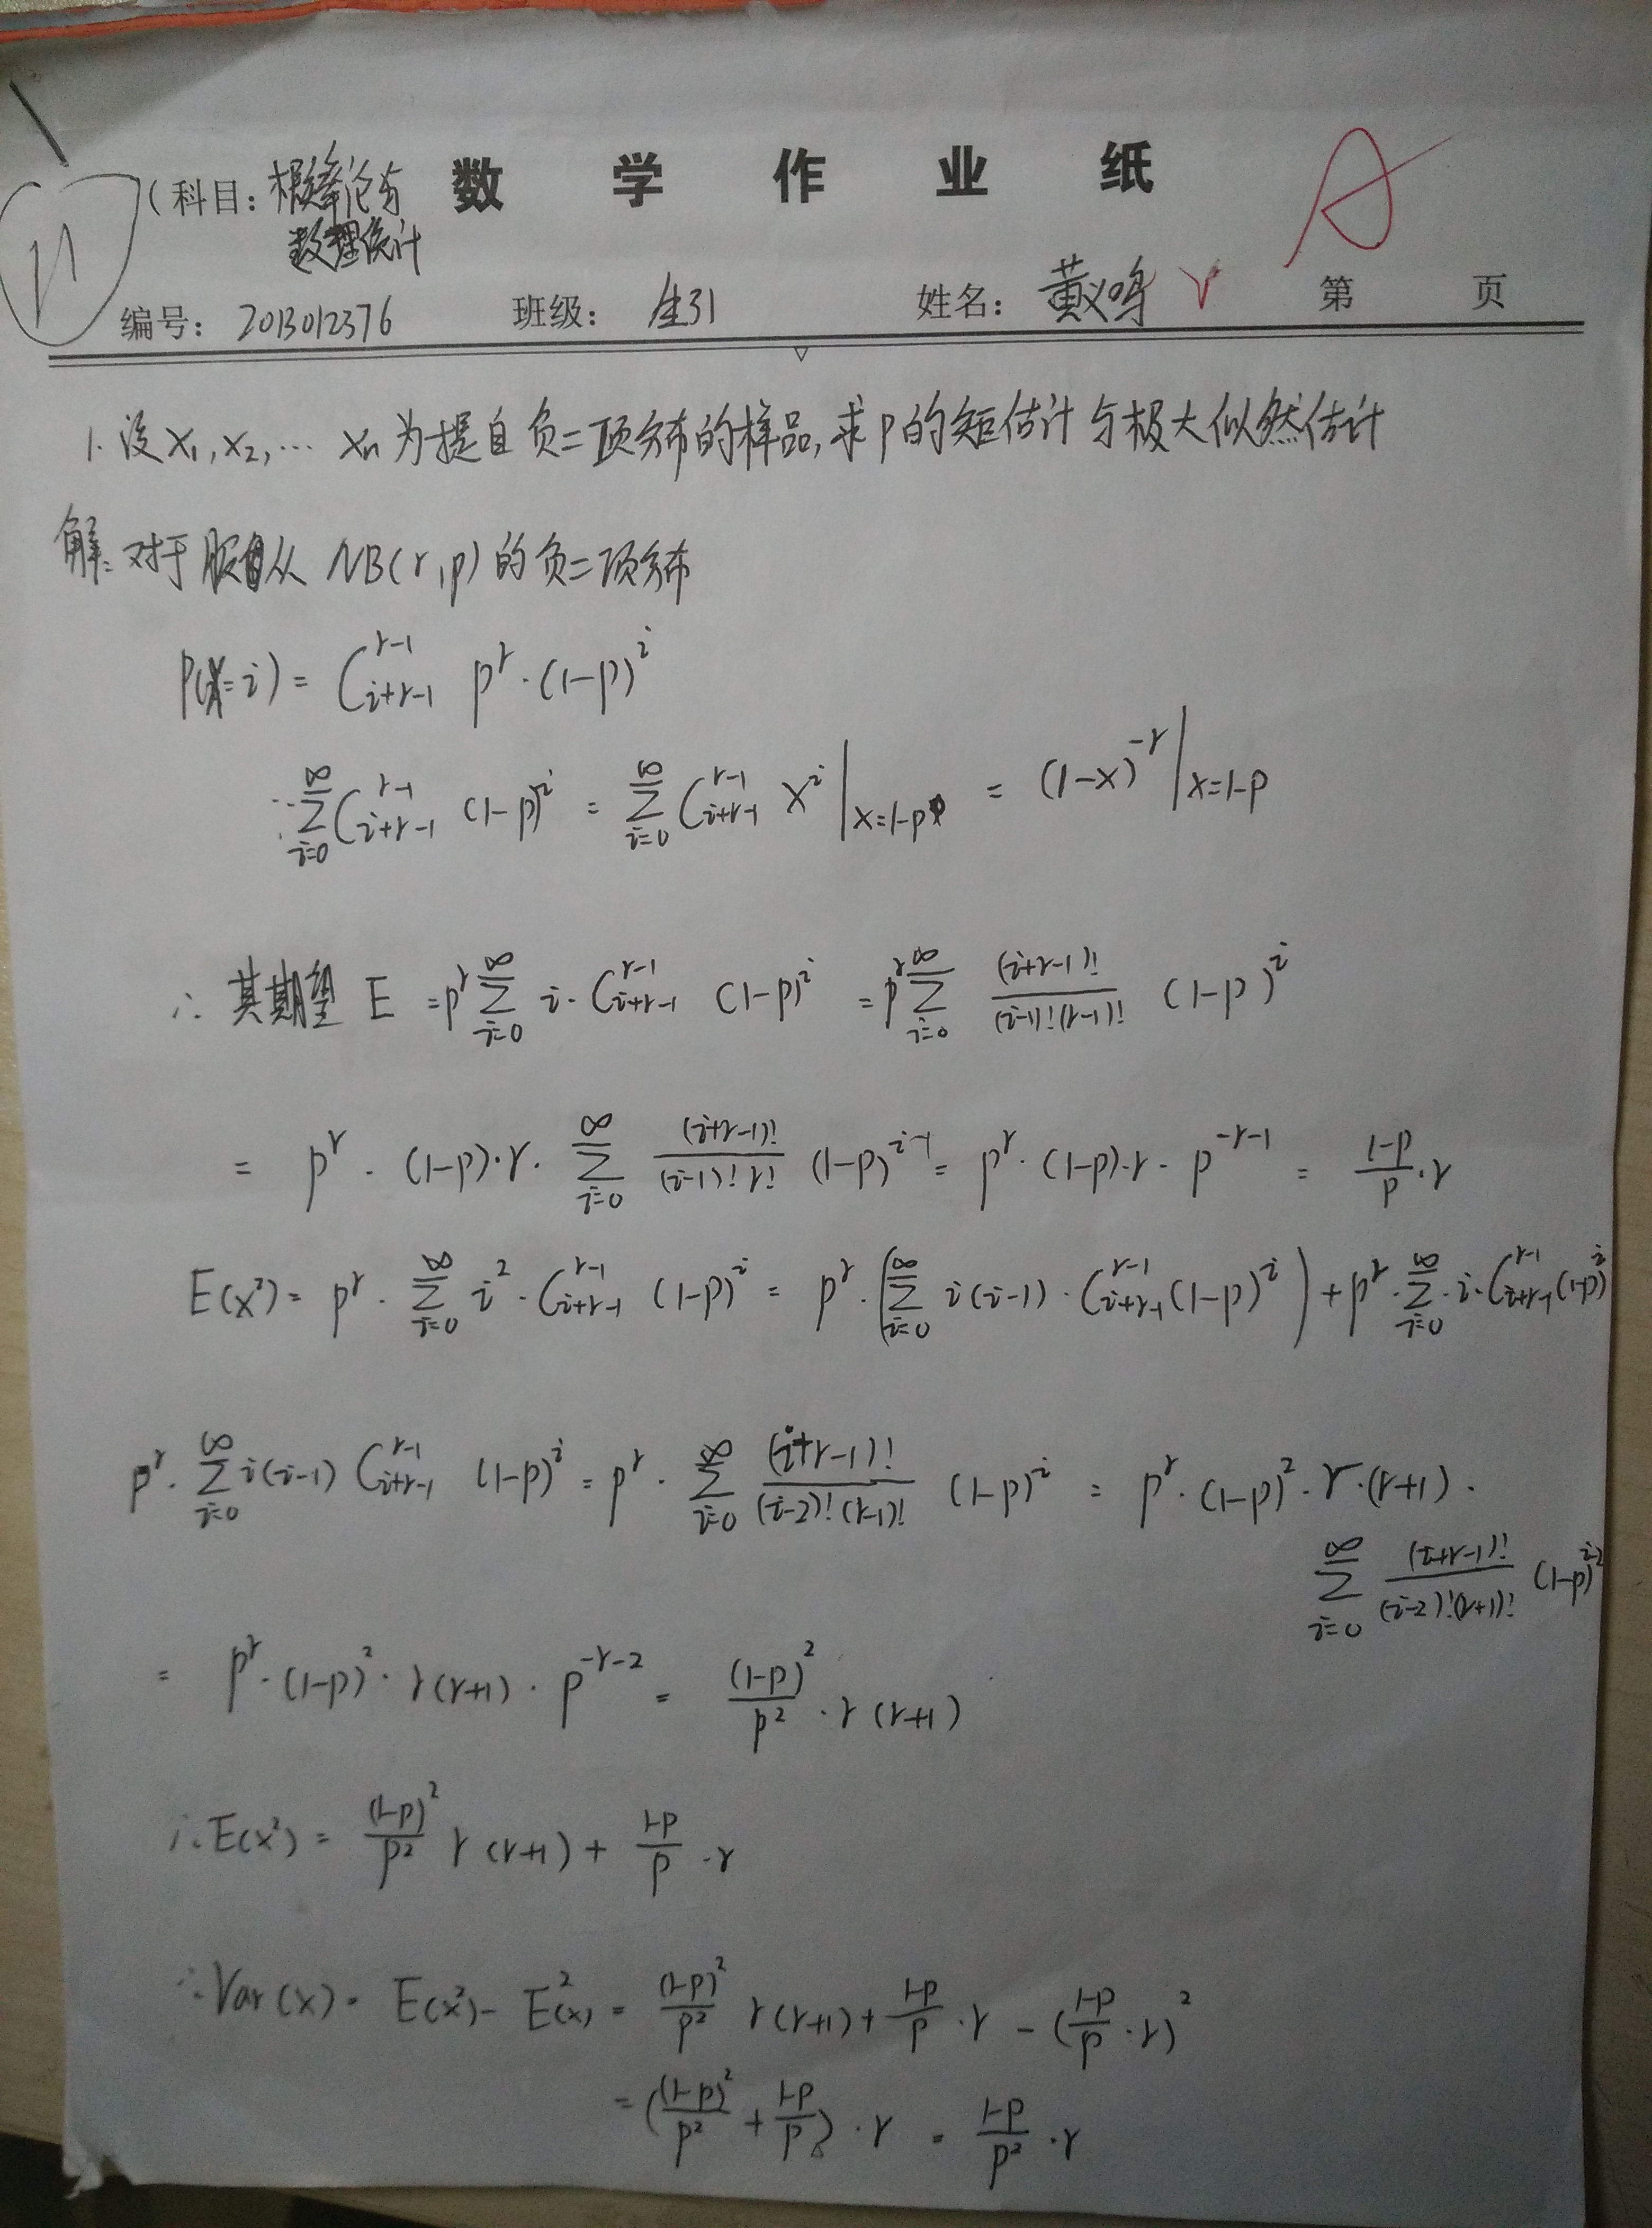 数学作业纸
(科目: 概率论与
数理统计
编号: 2013012376 班级: 生31 姓名: 黄义鸣 第 页
A
1. 设 x₁, x₂, … xₙ 为提自负二项分布的样品, 求 p 的矩估计与极大似然估计
解: 对于服从 NB(r, p) 的负二项分布
P(X=i) = C_{i+r-1}^{r-1} p^r · (1-p)^i
∵ \sum_{i=0}^{∞} C_{i+r-1}^{r-1} (1-p)^i = \sum_{i=0}^{∞} C_{i+r-1}^{r-1} x^i |_{x=1-p} = (1-x)^{-r} |_{x=1-p}
∴ 其期望 E = p^r \sum_{i=0}^{∞} i · C_{i+r-1}^{r-1} (1-p)^i = p^r \sum_{i=0}^{∞} \frac{(i+r-1)!}{(i-1)!(r-1)!} (1-p)^i
= p^r · (1-p) · r · \sum_{i=0}^{∞} \frac{(i+r-1)!}{(i-1)! r!} (1-p)^{i-1} = p^r · (1-p) · r · p^{-r-1} = \frac{1-p}{p} · r
E(x²) = p^r · \sum_{i=0}^{∞} i² · C_{i+r-1}^{r-1} (1-p)^i = p^r · (\sum_{i=0}^{∞} i(i-1) · C_{i+r-1}^{r-1} (1-p)^i) + p^r · \sum_{i=0}^{∞} · i · C_{i+r-1}^{r-1} (1-p)^i
p^r · \sum_{i=0}^{∞} i(i-1) C_{i+r-1}^{r-1} (1-p)^i = p^r · \sum_{i=0}^{∞} \frac{(i+r-1)!}{(i-2)!(r-1)!} (1-p)^i = p^r · (1-p)² · r · (r+1) ·
\sum_{i=0}^{∞} \frac{(i+r-1)!}{(i-2)!(r+1)!} (1-p)^{i-2}
= p^r · (1-p)² · r(r+1) · p^{-r-2} = \frac{(1-p)²}{p²} · r(r+1)
∴ E(x²) = \frac{(1-p)²}{p²} r(r+1) + \frac{1-p}{p} · r
∴ Var(x) = E(x²) - E²(x) = \frac{(1-p)²}{p²} r(r+1) + \frac{1-p}{p} · r - (\frac{1-p}{p} · r)²
= (\frac{(1-p)²}{p²} + \frac{1-p}{p}) · r = \frac{1-p}{p²} · r